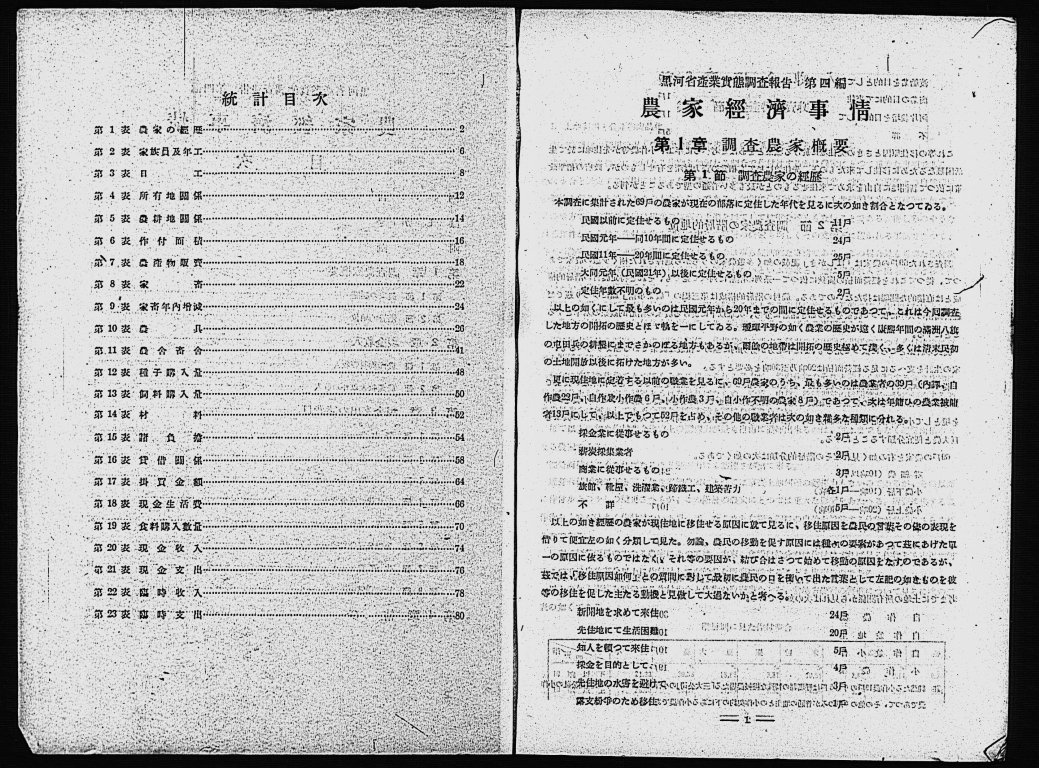 統計目次
第1表 農家の經歷 2
第2表 家族員及年工 6
第3表 日工 8
第4表 所有地關係 12
第5表 農耕地關係 14
第6表 作付面積 16
第7表 農產物販賣 18
第8表 家畜 22
第9表 家畜年內增減 24
第10表 農具 26
第11表 農舍畜舍 41
第12表 種子購入量 48
第13表 飼料購入量 50
第14表 材料 52
第15表 諸負擔 54
第16表 貸借關係 58
第17表 掛買金額 64
第18表 現金生活費 66
第19表 食料購入數量 70
第20表 現金收入 74
第21表 現金支出 76
第22表 臨時收入 78
第23表 臨時支出 80
黑河省產業實態調查報告 第四編
農家經濟事情
第1章 調查農家概要
第1節 調查農家の經歷
本調查に集計された69戶の農家が現在の部落に定住した年代を見るに次の如き割合となつてゐる。
民國以前に定住せるもの
民國元年——同10年間に定住せるもの 24戶
民國11年——20年間に定住せるもの 25戶
大同元年(民國21年)以後に定住せるもの 5戶
定住年數不明のもの 2戶
以上の如くにして最も多いのは民國元年から20年までの間に定住せるものであつて、これは今回調查
した地方の開拓の歷史と
の屯田兵の耕墾にまでさかのぼる地方もあるが、
の土地開放以後に拓けた地方が多い。
更に現住地に定着する以前の職業を見るに、69戶農家のうち、最も多いのは農業者の39戶(內譯、自
作農22戶、自作兼小作農6戶、小作農3戶、自小作不明の農家8戶)であつて、次は年雇ひの農業被傭
者13戶にして、以上でもつて52戶を占め、その他の職業者は次の如き雜多な種類に分れる。
採金業に從事せるもの
薪炭採集業者
商業に從事せるもの 3戶
旅館、靴屋、洗濯業、蹄鐵工、建築苦力 各1戶
不詳 5戶
以上の如き經歷の農家が現住地に移住せる原因に就て見るに、移住原因を農民の言葉その儘の表現を
借りて便宜左の如く分類して見た。勿論、農民の移動を促す原因には種々の要素があつて茲にあげた單
一の原因に依るものではなく、それ等の要因が、結び合はさつて始めて移動の原因をなすのであるが、
茲では「移住原因如何」との質問に對して最初に農民の口を衝いて出た言葉として左記の如きものを彼
等の移住を促した主たる動機と見做して大過ないかと考へる。
新開地を求めて來住 24戶
先住地にて生活困難 20戶
知人を賴つて來住 5戶
採金を目的として 4戶
先住地の水害を避けて 3戶
露支紛爭のため移住 1戶
1